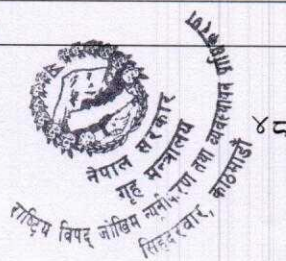 नेपाल सरकार
गृह मन्त्रालय
राष्ट्रिय विपद् जोखिम न्यूनीकरण तथा व्यवस्थापन प्राधिकरण
सिंहदरबार, काठमाडौं
४८